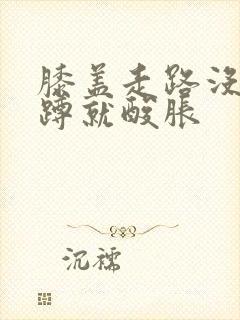 膝盖走路没
蹲就酸胀
沉襦